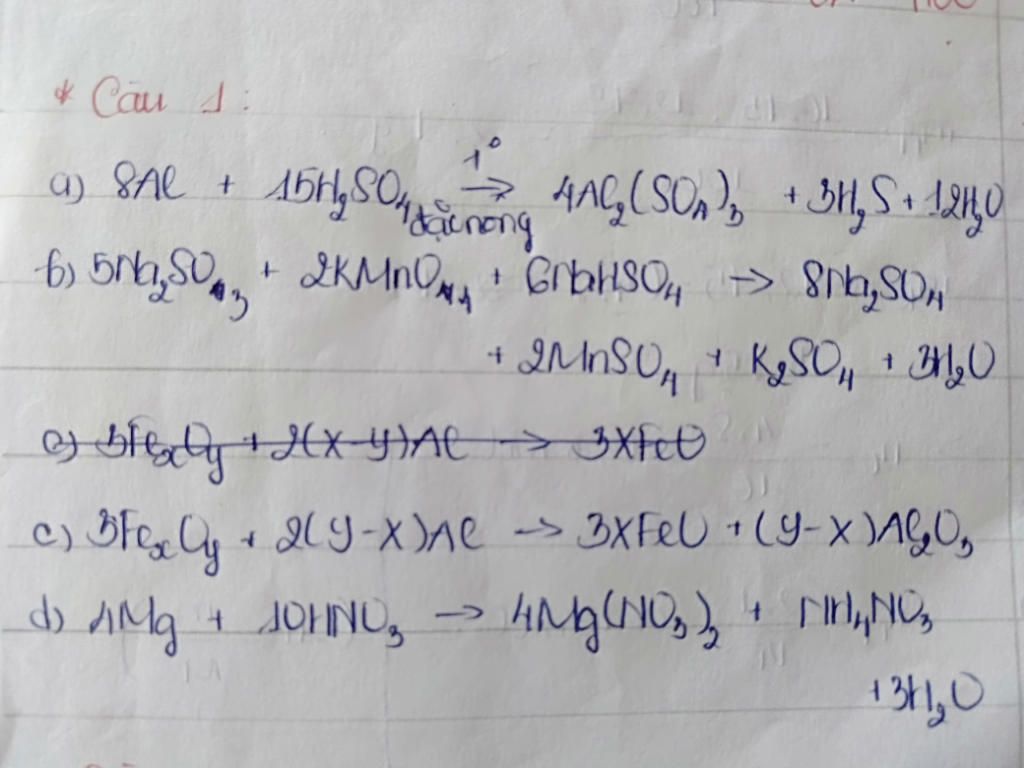 * Câu 1:
a) 8Al + 15H₂SO₄ đặc nóng →(t°) 4Al₂(SO₄)₃ + 3H₂S + 12H₂O
b) 5Na₂SO₃ + 2KMnO₄ + 6NaHSO₄ → 8Na₂SO₄
+ 2MnSO₄ + K₂SO₄ + 3H₂O
c) 3FeₓOy + 2(x-y)Al → 3xFeO
c) 3FeₓOy + 2(y-x)Al → 3xFeO + (y-x)Al₂O₃
d) 4Mg + 10HNO₃ → 4Mg(NO₃)₂ + NH₄NO₃
+ 3H₂O